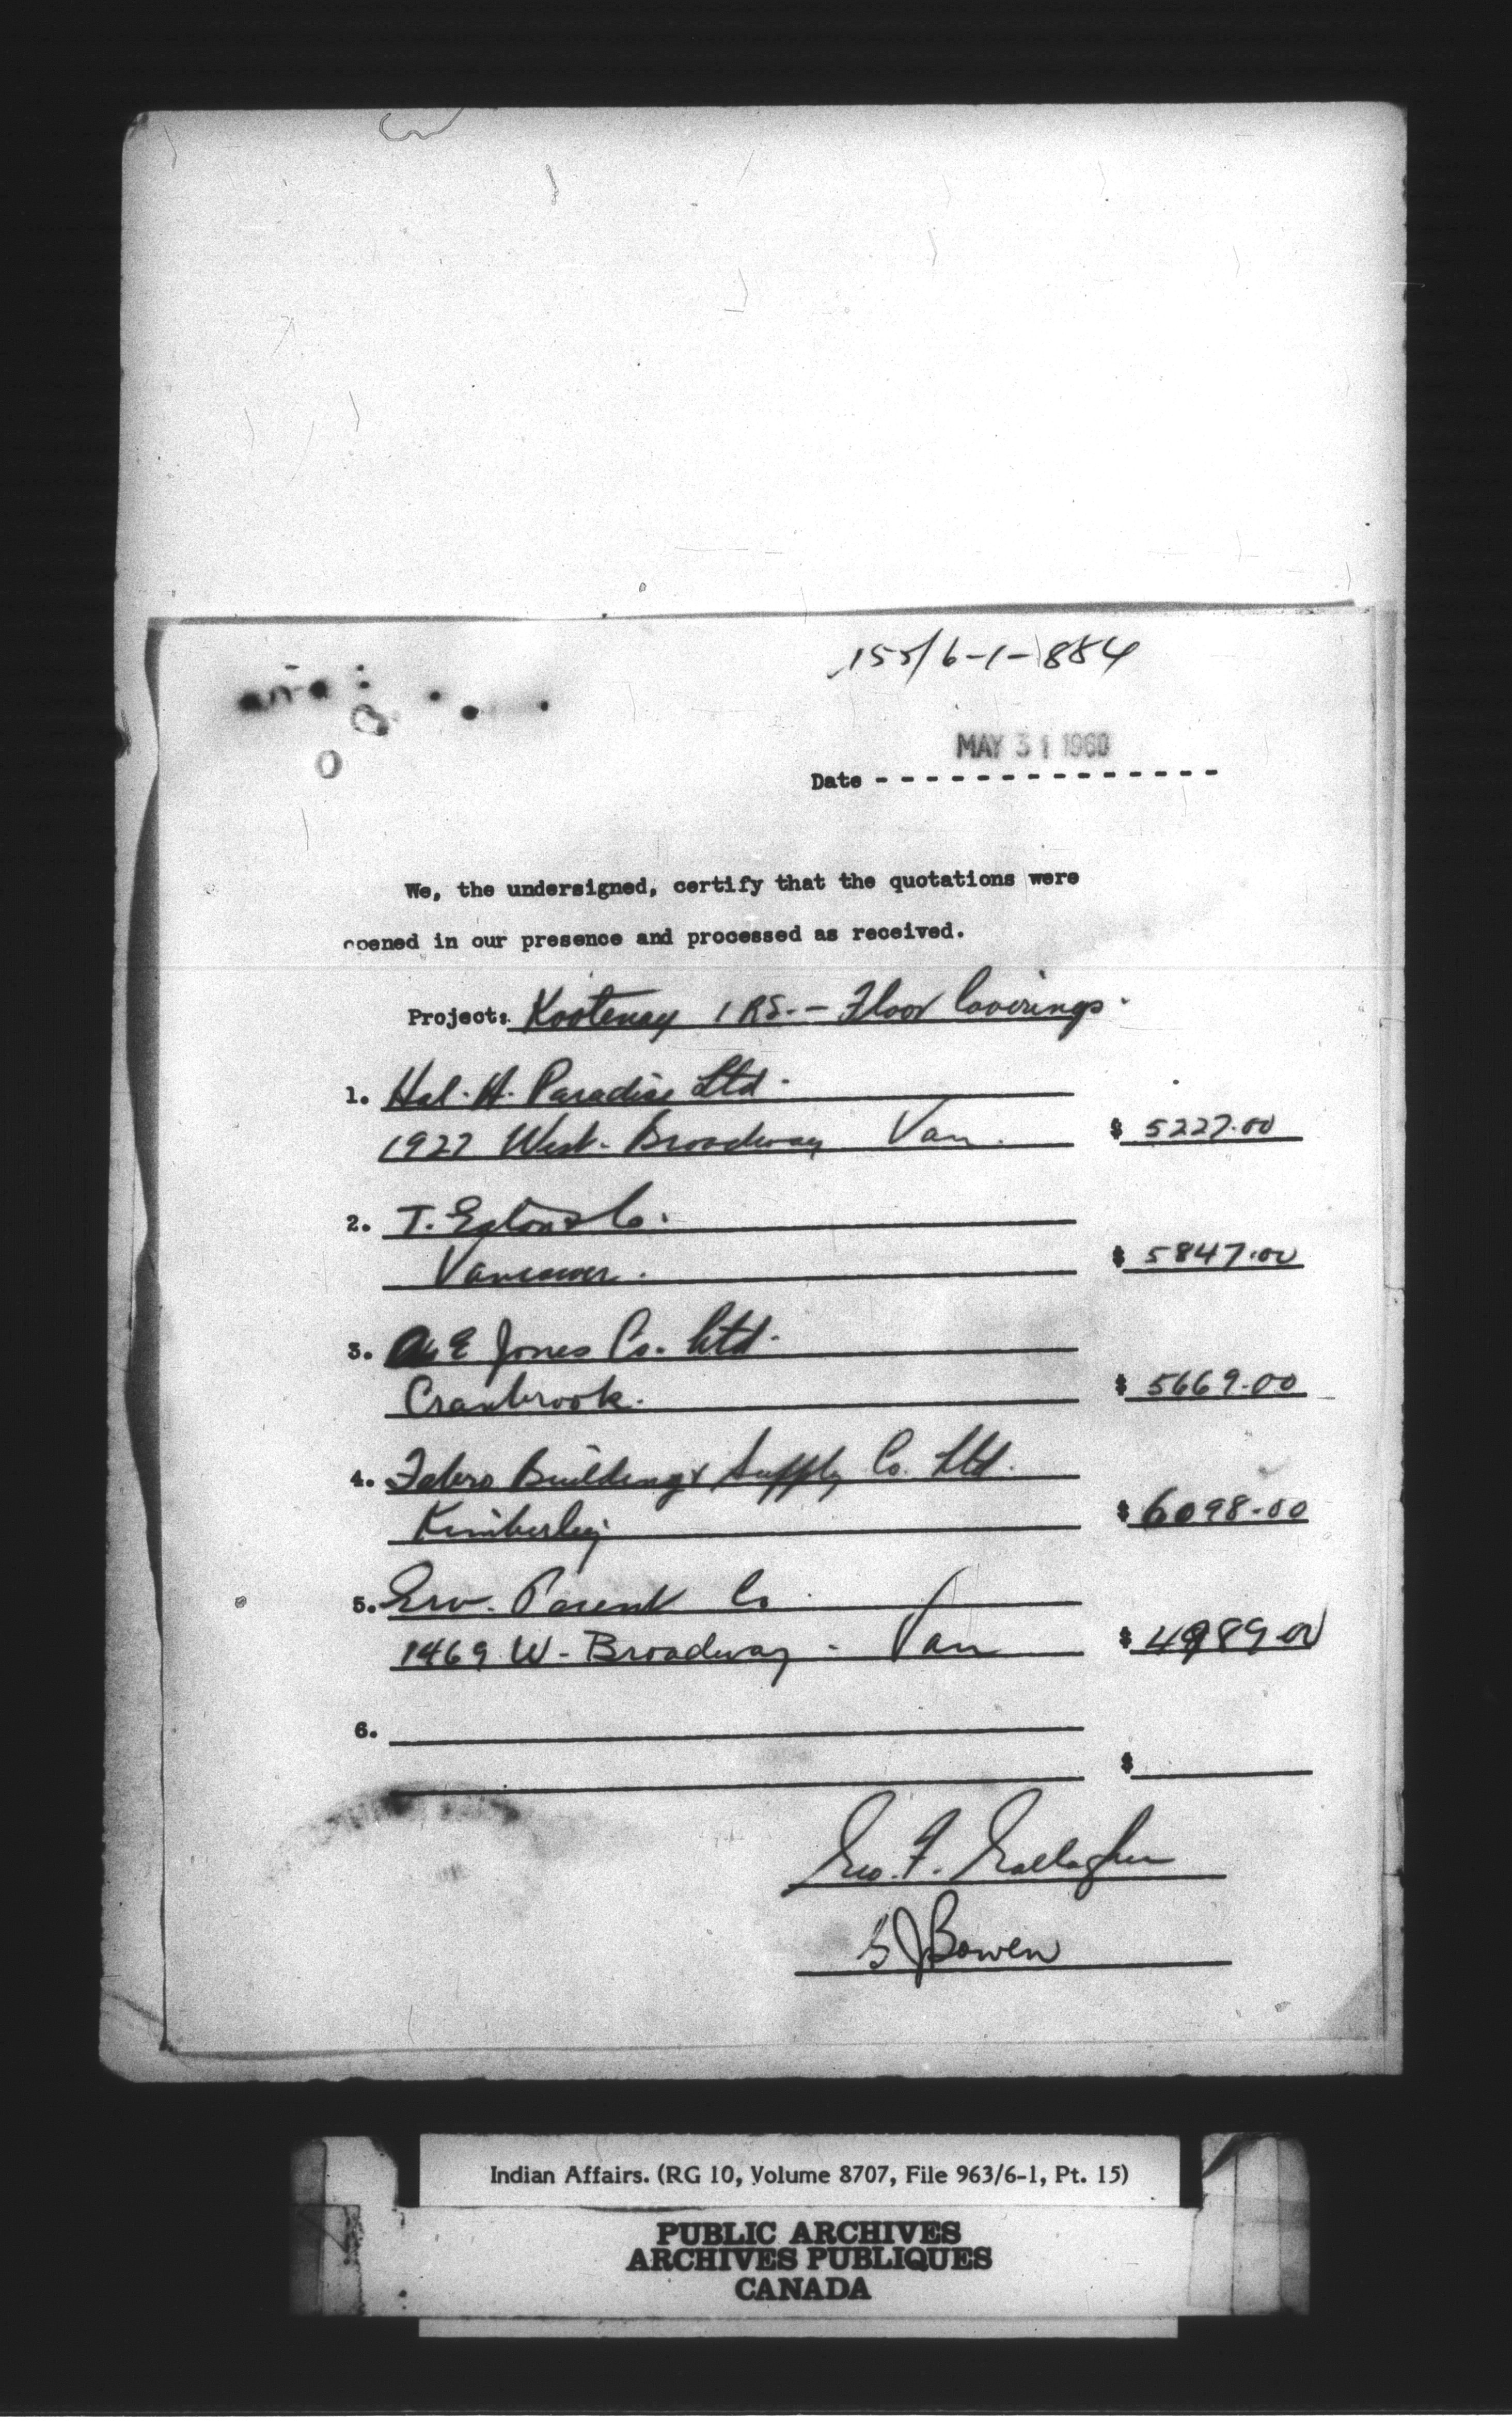 155/6-1-884
MAY 31 1960
Date - - - - - - - - - - - - - -
We, the undersigned, certify that the quotations were
opened in our presence and processed as received.
Project: Kootenay IRS. - Floor Coverings.
1. Hal. H. Paradise Ltd.
1927 West. Broadway Van. $ 5227.00
2. T. Eatons Co.
Vancouver. $ 5847.00
3. E Jones Co. Ltd.
Cranbrook. $ 5669.00
4. Building & Supply Co. Ltd.
Kimberley $ 6098.00
5. Erv. Parent Co.
1469 W. Broadway - Van $ 4989.00
6.
$
Geo. F. Gallagher
G J Bowen
Indian Affairs. (RG 10, Volume 8707, File 963/6-1, Pt. 15)
PUBLIC ARCHIVES
ARCHIVES PUBLIQUES
CANADA